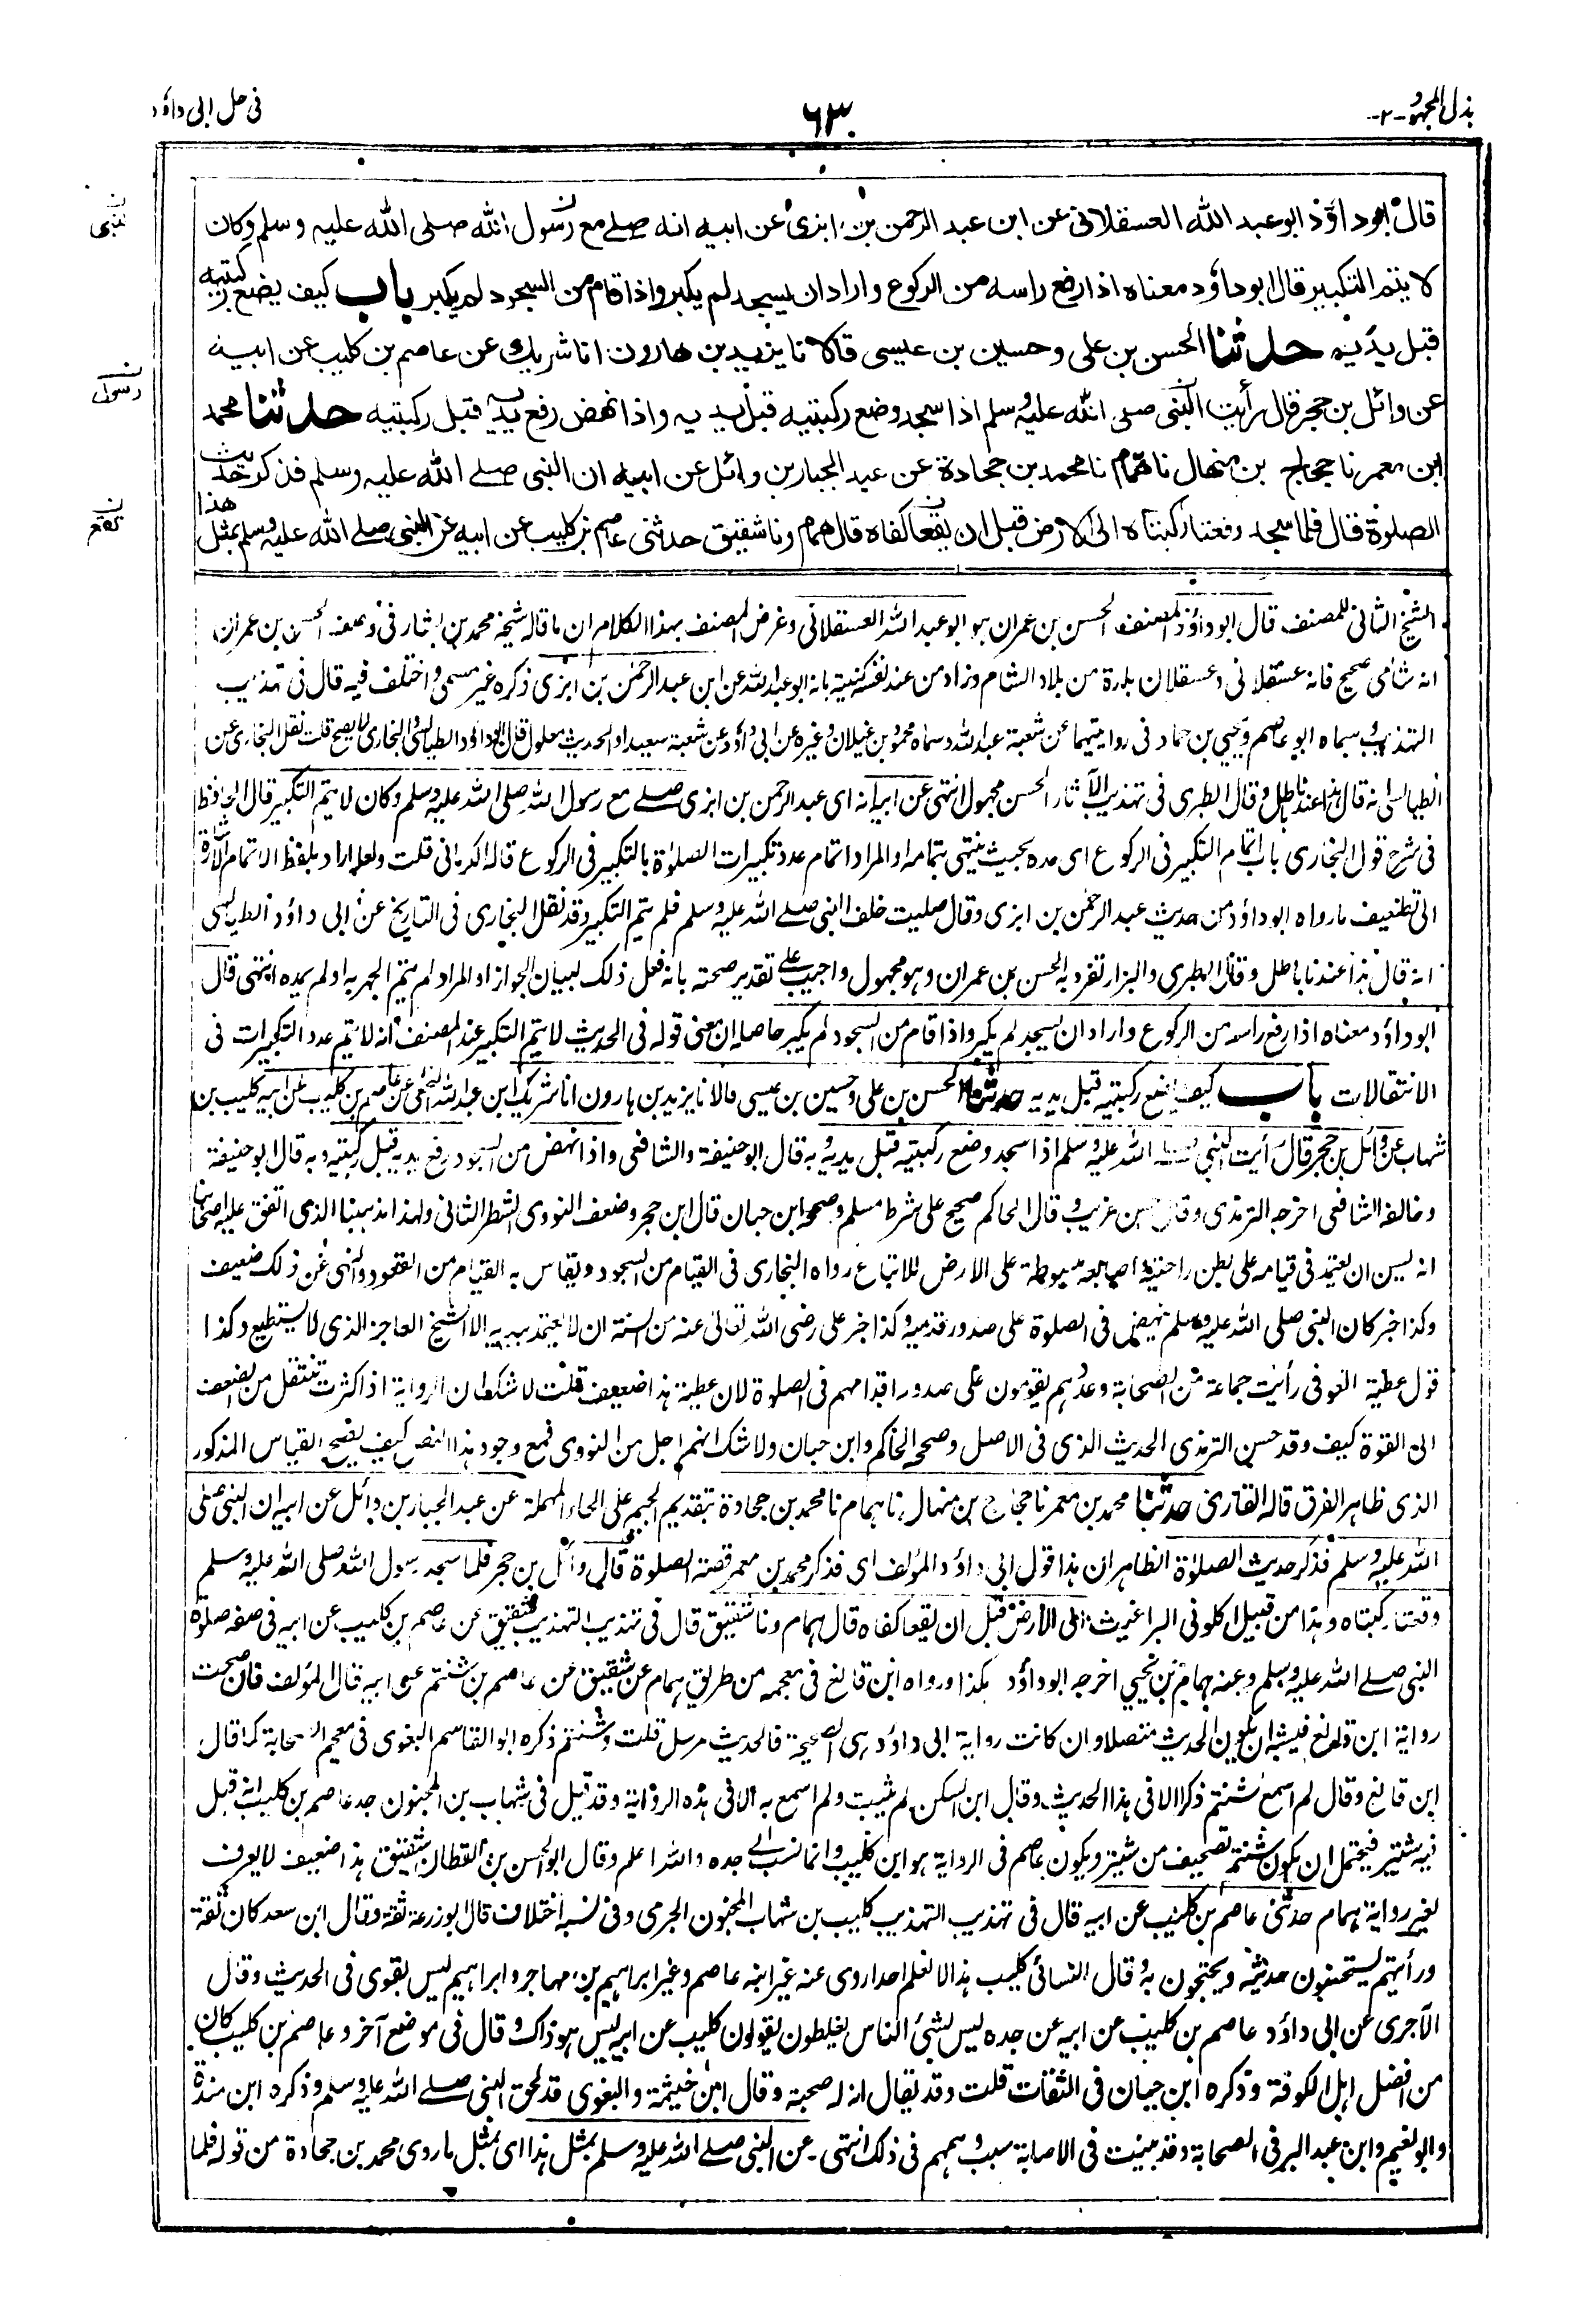 بذل المجهود -٢-
٦٣
فى حل ابى داؤد
قال ابوداؤد ابو عبد الله العسقلانى عن ابن عبد الرحمن بن ابزى عن ابيه انه صلے مع رسول الله صلى الله عليه وسلم وكان
لا يتم التكبير قال ابو داؤد معناه اذا رفع راسه من الركوع واراد ان يسجد لم يكبر واذا قام من السجود لم يكبر باب كيف يضع ركبتيه
قبل يديه حدثنا الحسن بن على وحسين بن عيسى قالا نا يزيد بن هارون انا شريك عن عاصم بن كليب عن ابيه
عن وائل بن حجر قال رأيت النبى صلى الله عليه وسلم اذا سجد وضع ركبتيه قبل يديه واذا نهض رفع يديه قبل ركبتيه حدثنا محمد
ابن معمر نا حجاج بن منهال نا همام نا محمد بن جحادة عن عبد الجبار بن وائل عن ابيه ان النبى صلے الله عليه وسلم فذكر حديث
الصلوة قال فلما سجد وقعتا ركبتاه الى الارض قبل ان يقعا كفاه قال همام ونا شقيق حدثنى عاصم بن كليب عن ابيه عن النبى صلے الله عليه وسلم بمثل هذا
النبى
رسول
تقع
الشيخ الثانى للمصنف قال ابو داؤد المصنف الحسن بن عمران هو ابو عبد الله العسقلانى وغرض المصنف بهذا الكلام ان ما قاله شيخه محمد بن بشار فى وصف الحسن بن عمران
انه شامى صحيح فانه عسقلانى وعسقلان بلدة من بلاد الشام وزاد من عند نفسه كنيته بانه ابو عبد الله عن ابن عبد الرحمن بن ابزى ذكره غير مسمى واختلف فيه قال فى تهذيب
التهذيب وسماه ابو عاصم ويحيى بن حماد فى روايتهما عن شعبة عبد الله وسماه محمود بن غيلان وغيره عن ابى داؤد عن شعبة سعيدا والحديث معلول قال ابو داؤد الطيالسى والبخارى لا يصح قلت نقل البخارى عن
الطيالسى انه قال هذا عندنا باطل وقال الطبرى فى تهذيب الآثار الحسن مجهول انتهى عن ابيه انه اى عبد الرحمن بن ابزى صلے مع رسول الله صلى الله عليه وسلم وكان لا يتم التكبير قال الحافظ
فى شرح قول البخارى باب اتمام التكبير فى الركوع اى مده بحيث ينتهى بتمامه او المراد اتمام عدد تكبيرات الصلوٰة بالتكبير فى الركوع قاله الكرمانى قلت ولعله اراد بلفظ الاتمام الاشارة
الى تضعيف ما رواه ابو داؤد من حديث عبد الرحمن بن ابزى وقال صليت خلف النبى صلے الله عليه وسلم فلم يتم التكبير وقد نقل البخارى فى التاريخ عن ابى داؤد الطيالسى
انه قال هذا عندنا باطل وقال الطبرى والبزار تفرد به الحسن بن عمران وهو مجهول واجيب على تقدير صحته بانه فعل ذلك لبيان الجواز او المراد لم يتم الجهر به او لم يمده انتهى قال
ابو داؤد معناه اذا رفع راسه من الركوع واراد ان يسجد لم يكبر واذا قام من السجود لم يكبر حاصله ان معنى قوله فى الحديث لا يتم التكبير عند المصنف انه لا يتم عدد التكبيرات فى
الانتقالات باب كيف يضع ركبتيه قبل يديه حدثنا الحسن بن على وحسين بن عيسى قالا نا يزيد بن هارون انا شريك ابن عبد الله النخعى عن عاصم بن كليب عن ابيه كليب بن
شهاب عن وائل بن حجر قال رأيت النبى صلے الله عليه وسلم اذا سجد وضع ركبتيه قبل يديه وبه قال ابو حنيفة والشافعى واذا نهض من السجود رفع يديه قبل ركبتيه وبه قال ابو حنيفة
وخالفه الشافعى اخرجه الترمذى وقال حسن غريب وقال الحاكم صحيح على شرط مسلم وصححه ابن حبان قال ابن حجر وضعف النووى الشطر الثانى ولهذا مذهبنا الذى اتفق عليه اصحابنا
انه يسن ان يعتمد فى قيامه على بطن راحتيه واصابعه مبسوطة على الارض للاتباع رواه البخارى فى القيام من السجود ويقاس به القيام من القعود والنهى عن ذلك ضعيف
وكذا خبر كان النبى صلى الله عليه وسلم ينهض فى الصلوة على صدور قدميه وكذا خبر على رضى الله تعالى عنه من السنة ان لا يعتمد بيديه الا الشيخ العاجز الذى لا يستطيع وكذا
قول عطية العوفى رأيت جماعة من الصحابة وعدهم يقومون على صدور اقدامهم فى الصلوة لان عطية هذا ضعيف قلت لا شك ان الرواية اذا كثرت تنتقل من الضعف
الى القوة كيف وقد حسن الترمذى الحديث الذى فى الاصل وصححه الحاكم وابن حبان ولا شك انهم اجل من النووى فمع وجود هذا النص كيف يصح القياس المذكور
الذى ظاهر الفرق قاله القارى حدثنا محمد بن معمر نا حجاج بن منهال نا همام نا محمد بن جحادة بتقديم الجيم على الحاء المهملة عن عبد الجبار بن وائل عن ابيه ان النبى صلى
الله عليه وسلم فذكر حديث الصلوٰة الظاهر ان هذا قول ابى داؤد المؤلف اى فذكر محمد بن معمر قصة الصلوة قال وائل بن حجر فلما سجد رسول الله صلى الله عليه وسلم
وقعتا ركبتاه وهذا من قبيل اكلونى البراغيث الى الارض قبل ان يقعا كفاه قال همام ونا شقيق قال فى تهذيب التهذيب شقيق عن عاصم بن كليب عن ابيه فى صفة صلوة
النبى صلے الله عليه وسلم وعنه همام بن يحيى اخرجه ابو داؤد هكذا ورواه ابن قانع فى معجمه من طريق همام عن شقيق عن عاصم بن شنتم عن ابيه قال المؤلف فان صحت
رواية ابن قانع فيشبه ان يكون الحديث متصلا وان كانت رواية ابى داؤد هى الصحيحة فالحديث مرسل قلت وشنتم ذكره ابو القاسم البغوى فى معجم الصحابة كما قال
ابن قانع وقال لم اسمع شنتم ذكر الا فى هذا الحديث وقال ابن السكن لم يثبت ولم اسمع به الا فى هذه الرواية وقد قيل فى شهاب بن المجنون جد عاصم بن كليب انه قيل
فيه شتير فيحتمل ان يكون شنتم تصحيف من شتير ويكون عاصم فى الرواية هو ابن كليب وانما نسب الى جده والله اعلم وقال ابو الحسن بن القطان شقيق هذا ضعيف لا يعرف
لغير رواية همام حدثنى عاصم بن كليب عن ابيه قال فى تهذيب التهذيب كليب بن شهاب المجنون الجرمى وفى نسبه اختلاف قال ابو زرعة ثقة وقال ابن سعد كان ثقة
ورأيتهم يستحسنون حديثه ويحتجون به وقال النسائى كليب هذا لا نعلم احدا روى عنه غير ابنه عاصم وغير ابراهيم بن مهاجر وابراهيم ليس بقوى فى الحديث وقال
الآجرى عن ابى داؤد عاصم بن كليب عن ابيه عن جده ليس بشئ الناس يغلطون يقولون كليب عن ابيه ليس هو ذاك وقال فى موضع آخر وعاصم بن كليب كان
من افضل اهل الكوفة وذكره ابن حبان فى الثقات قلت وقد يقال ان له صحبة وقال ابن خيثمة والبغوى قد لحق النبى صلے الله عليه وسلم وذكره ابن مندة
وابو نعيم وابن عبد البر فى الصحابة وقد بينت فى الاصابة سبب وهمهم فى ذلك انتهى - عن النبى صلے الله عليه وسلم بمثل هذا اى بمثل ما روى محمد بن جحادة من قوله فلما